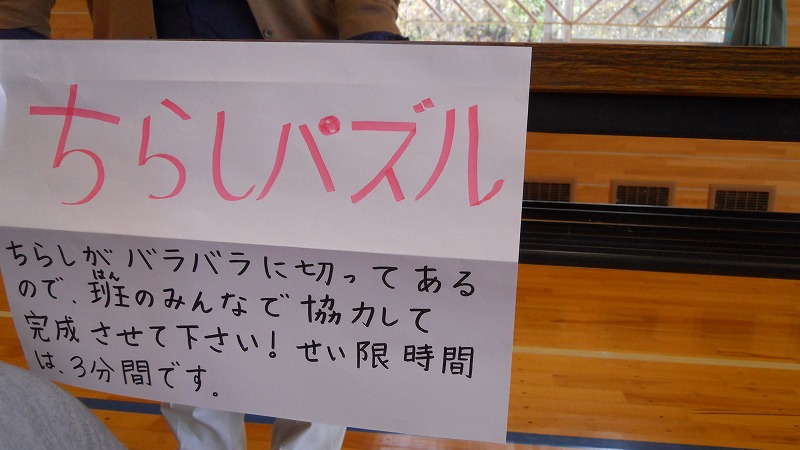 ちらしパズル
ちらしがバラバラに切ってある
ので、班のみんなで協力して
はん
完成させて下さい!せい限時間
は、3分間です。